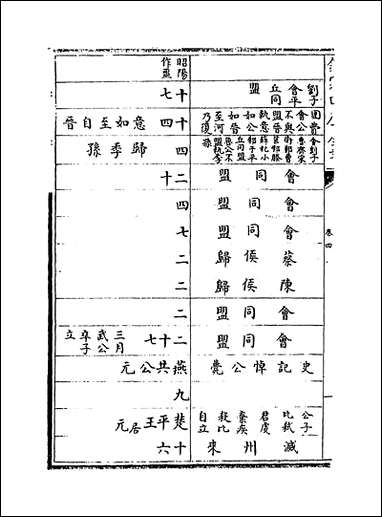 劉子會平丘同盟
十七
昭陽作噩
圍費會公不與盟晉執意如公如晉至河乃復
十四
意如至自晉
會劉子魯齊宋衛鄭曹莒邾滕薛杞小邾于平丘同盟魯公不
盟執季孫
四
歸季孫
會同盟
十二
會同盟
四
會同盟
七
蔡侯歸
二
陳侯歸
二
會同盟
二
會同盟
二十七
三月武公卒子立
史記悼公薨
燕共公元
九
公子比弑君虔棄疾殺比自立
楚平王居元
滅州來
十六
卷四